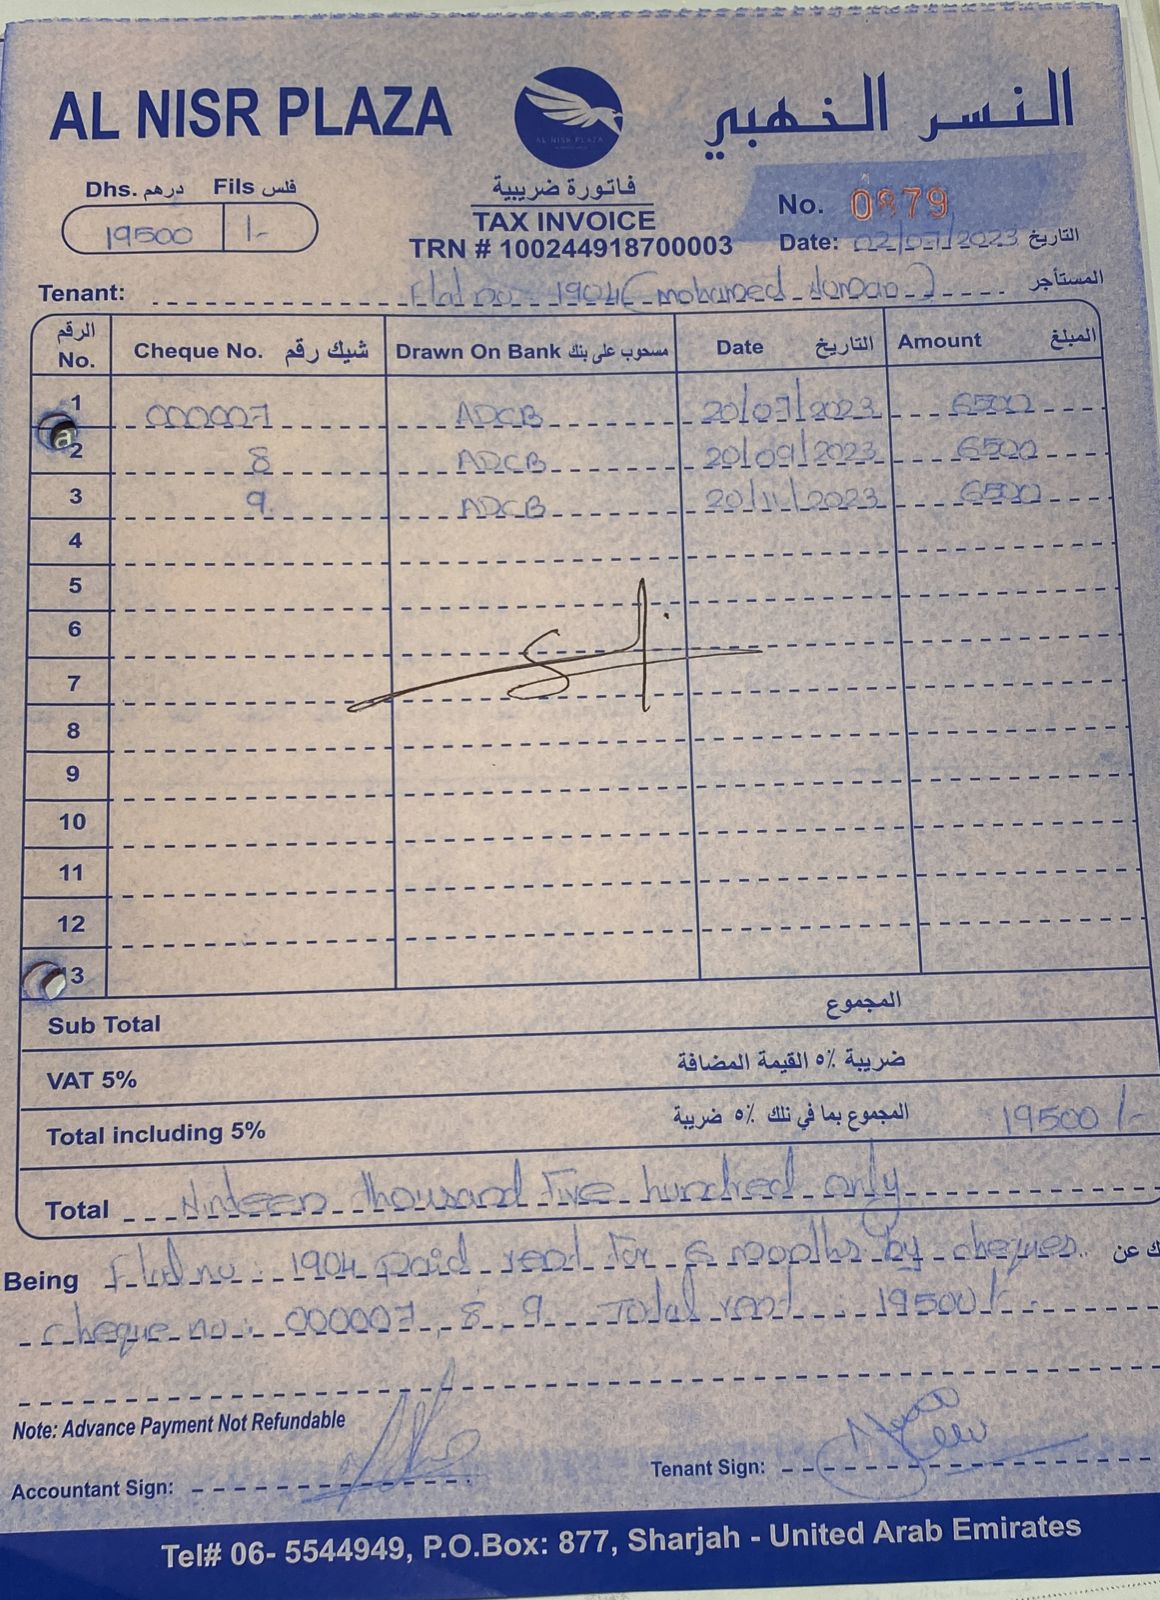 AL NISR PLAZA
AL NISR PLAZA
النسر الذهبي
Dhs. درهم Fils فلس
19500 /-
فاتورة ضريبية
TAX INVOICE
TRN # 100244918700003
No. 0879
Date: 02/07/2023 التاريخ
Tenant: Flat no 1904 (mohamed) المستأجر
الرقم No. Cheque No. شيك رقم Drawn On Bank مسحوب على بنك Date التاريخ Amount المبلغ
1 000007 ADCB 20/07/2023 6500
2 8 ADCB 20/09/2023 6500
3 9 ADCB 20/11/2023 6500
4
5
6
7
8
9
10
11
12
13
Sub Total المجموع
VAT 5% ضريبة ٥٪ القيمة المضافة
Total including 5% المجموع بما في تلك ٥٪ ضريبة 19500/-
Total Ninteen thousand Five hundred only
Being Flat no : 1904 paid rent for 6 months by cheques. ك عن
cheque no : 000007, 8, 9 Total rent : 19500/-
Note: Advance Payment Not Refundable
Accountant Sign: Tenant Sign:
Tel# 06- 5544949, P.O.Box: 877, Sharjah - United Arab Emirates